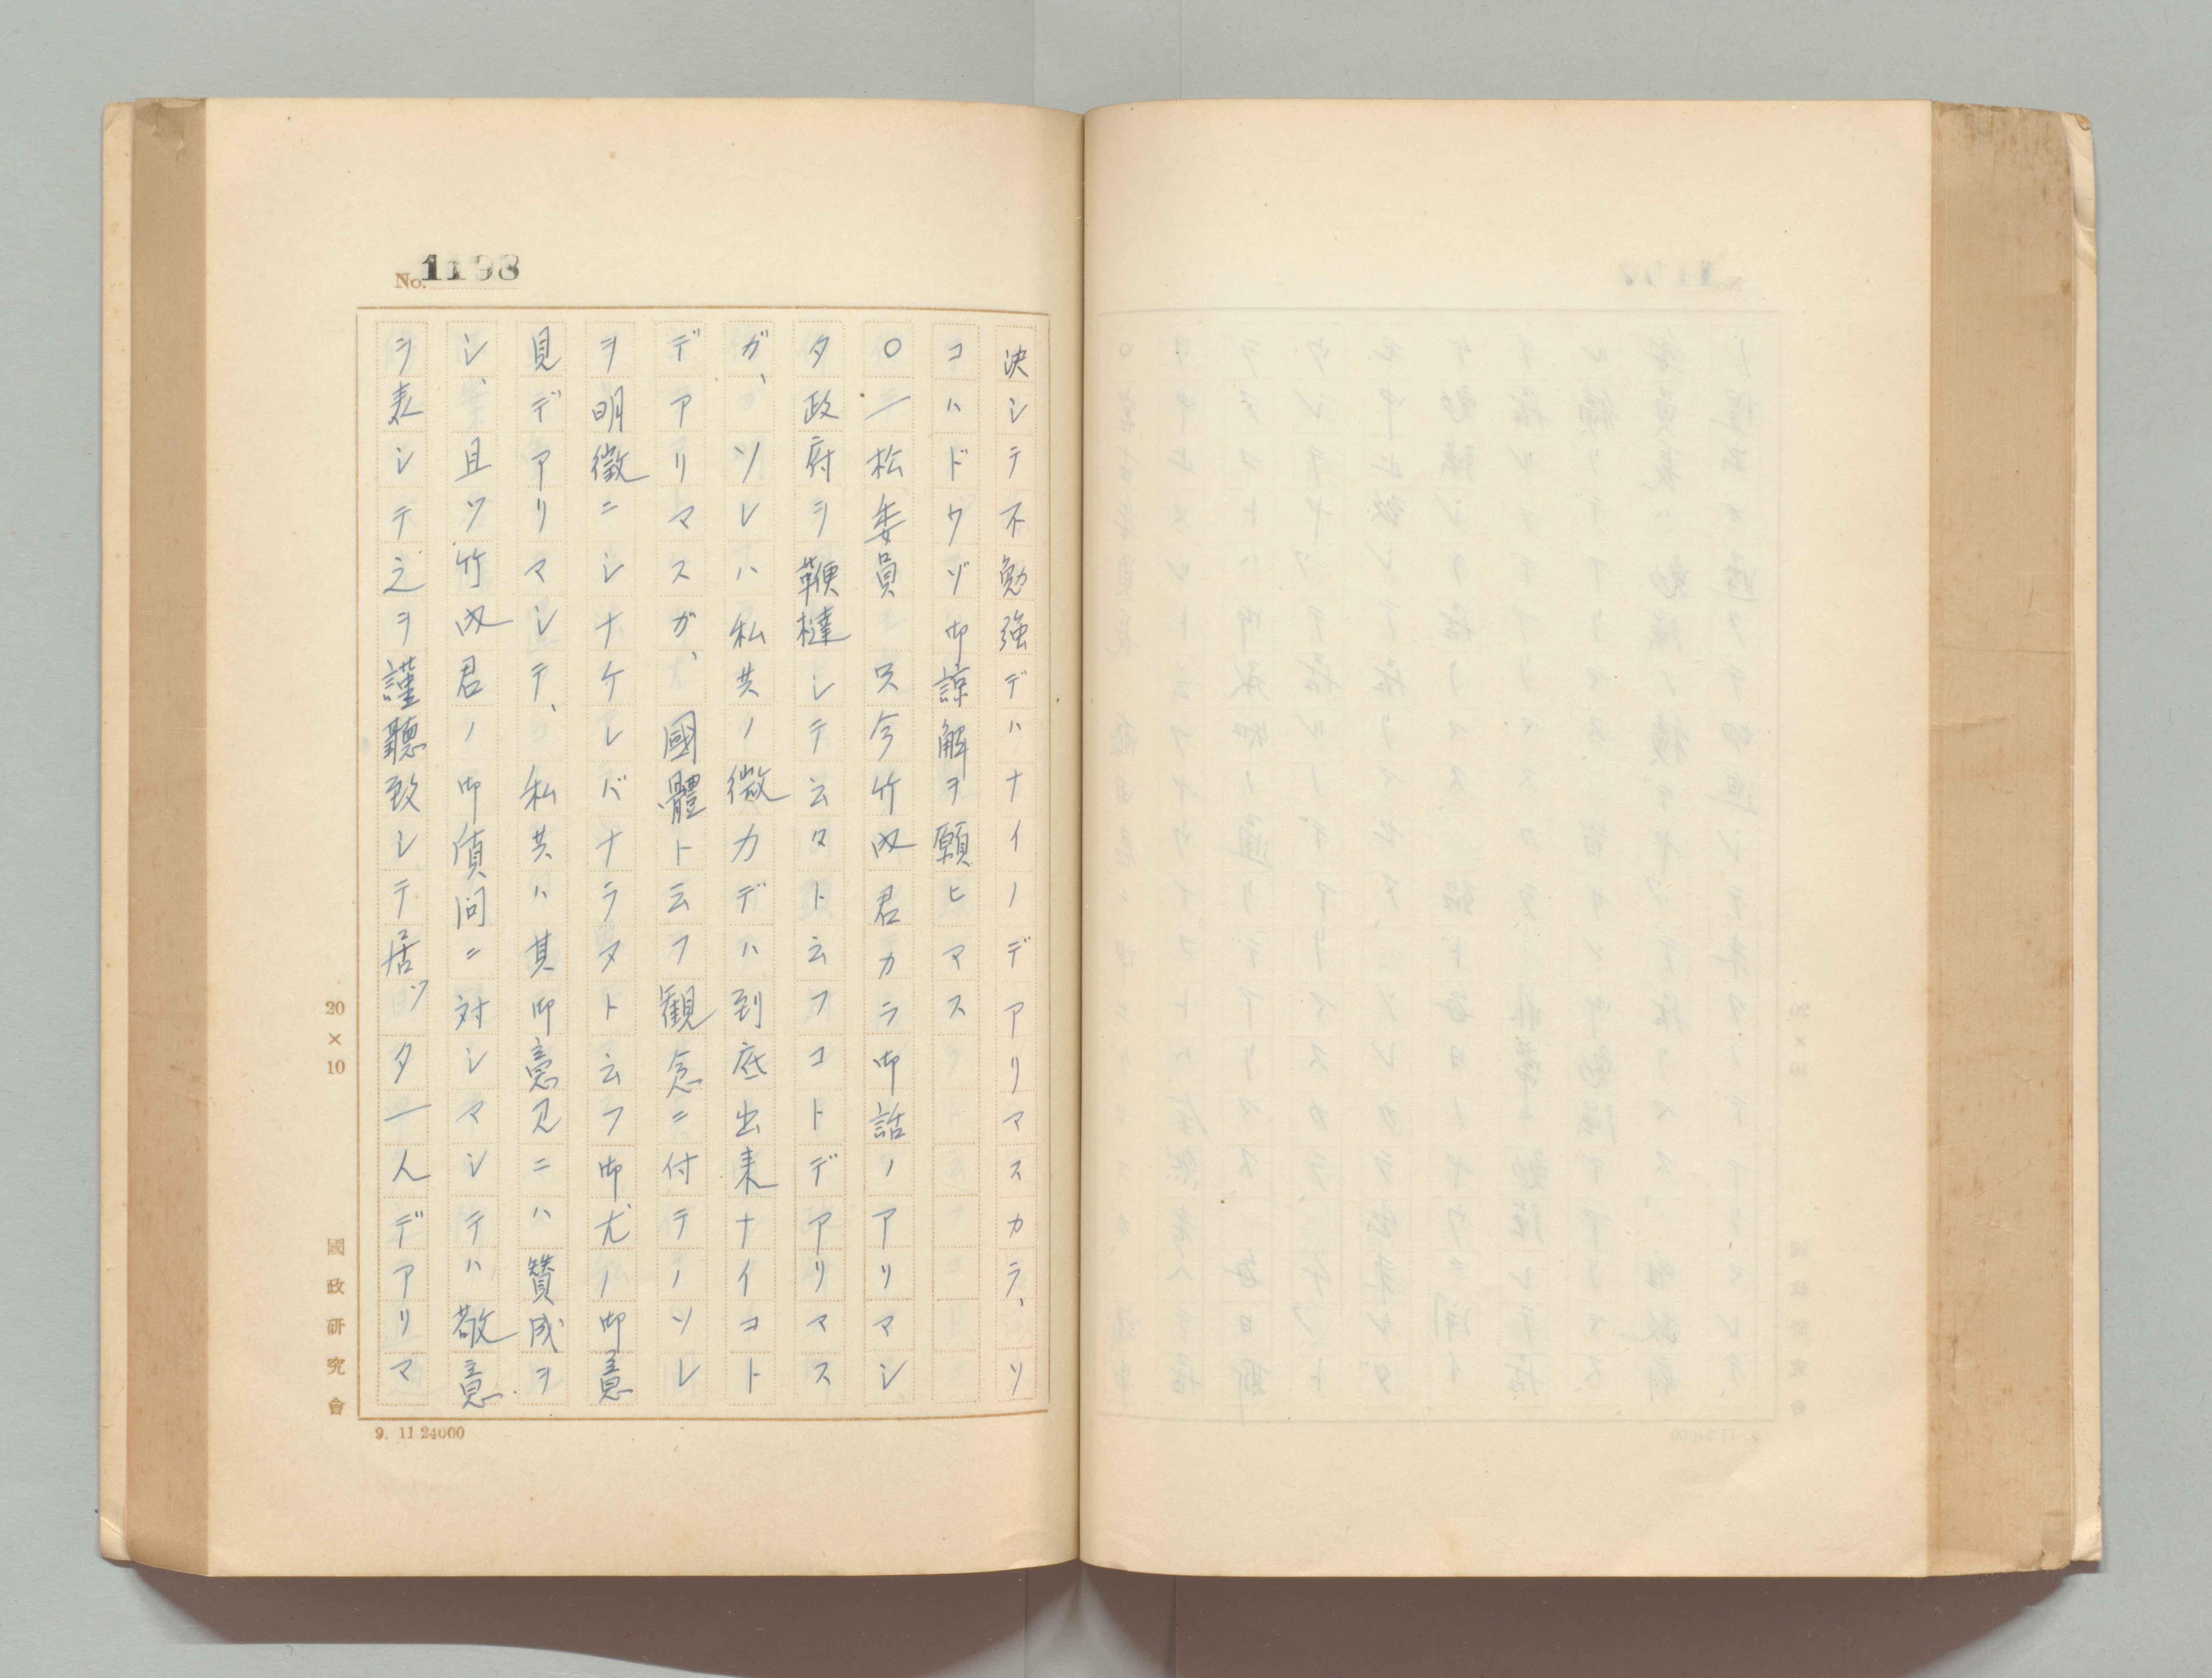 No. 1198
決シテ不勉強デハナイノデアリマスカラ、ソ
コハドウゾ御諒解ヲ願ヒマス
〇一松委員 只今竹内君カラ御話ノアリマシ
タ政府ヲ鞭撻シテ云タト云フコトデアリマス
ガ、ソレハ私共ノ微力デハ到底出来ナイコト
デアリマスガ、國體ト云フ観念ニ付テノソレ
ヲ明徴ニシナケレバナラヌト云フ御尤ノ御意
見デアリマシテ、私共ハ其御意見ニハ賛成ヲ
シ、且ツ竹内君ノ御質問ニ対シマシテハ敬意
ヲ表シテ之ヲ謹聽致シテ居ツタ一人デアリマ
20×10
國政研究會
9. 11 24000